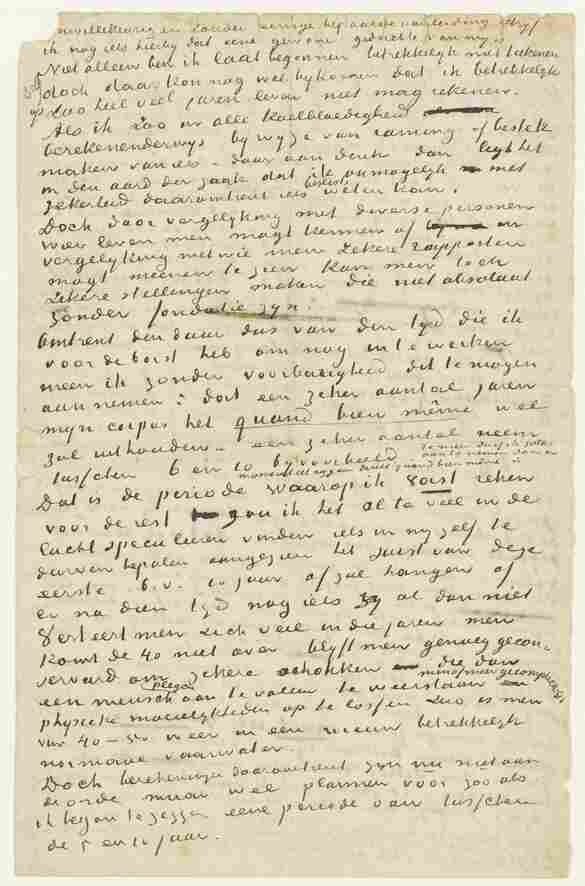 onwillekeurig en zonder eenige bepaalde aanleiding schryf
ik nog iets hierby dat eene gewone gedachte van my is
Niet alleen ben ik laat begonnen betrekkelyk met teekenen
doch daar kon nog wel bykomen dat ik betrekkelyk
op zoo heel veel jaren leven niet mag rekenen.
Als ik zoo in alle koelbloedigheid
berekenenderwys by wyze van raming of bestek
maken van iets – daar aan denk dan ligt het
in den aard der zaak dat ik onmogelyk met
beslist
zekerheid daaromtrent iets weten kan.
Doch door vergelyking met diverse personen
wier leven men mogt kennen of in
vergelyking met wie men zekere rapporten
mogt meenen te zien kan men toch
zekere stellingen maken die niet absoluut
zonder fondatie zyn.
Omtrent den duur dus van den tyd die ik
voor de borst heb om nog in te werken
meen ik zonder voorbarigheid dit te mogen
aannemen: dat een zeker aantal jaren
myn corpus het quand bien même wel
zal uithouden – een zeker aantal neem
tusschen 6 en 10 byvoorbeeld
Dat is de periode waarop ik vast reken
voor de rest zou ik het al te veel in de
lucht speculeeren vinden iets in myzelf te
durven bepalen aangezien het juist van deze
eerste b.v. 10 jaar af zal hangen of
er na dien tyd nog iets zy al dan niet
Verteert men zich veel in die jaren men
komt de 40 niet over blyft men genoeg gecon-
serveerd om zekere schokken die dan
een mensch plegen aan te vallen te weerstaan
min of meer gecompliceerde
physieke moeielykheden op te lossen zoo is men
van 40–50 weer in een nieuw betrekkelyk
normaal vaarwater.
Doch berekeningen daaromtrent zyn nu niet aan
de orde maar wel plannen voor zoo als
ik begon te zeggen eene periode van tusschen
de 5 en 10 jaar.